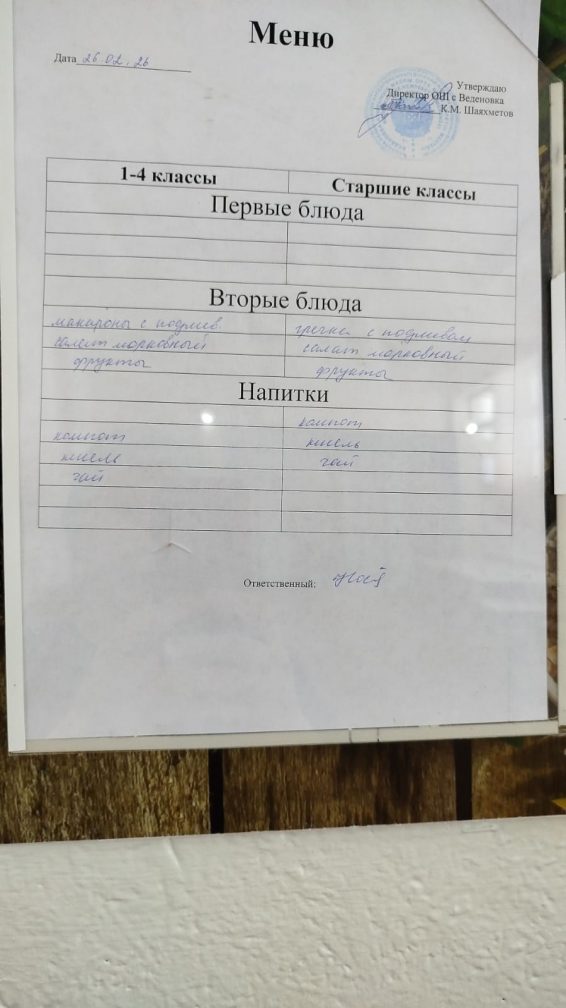 Меню
Дата 26.02.26
Утверждаю
Директор ОШ с Веденовка
К.М. Шаяхметов
1-4 классы Старшие классы
Первые блюда
Вторые блюда
макароны с подлив. гречка с подливом
салат морковный салат морковный
фрукты фрукты
Напитки
компот
компот кисель
кисель чай
чай
Ответственный: